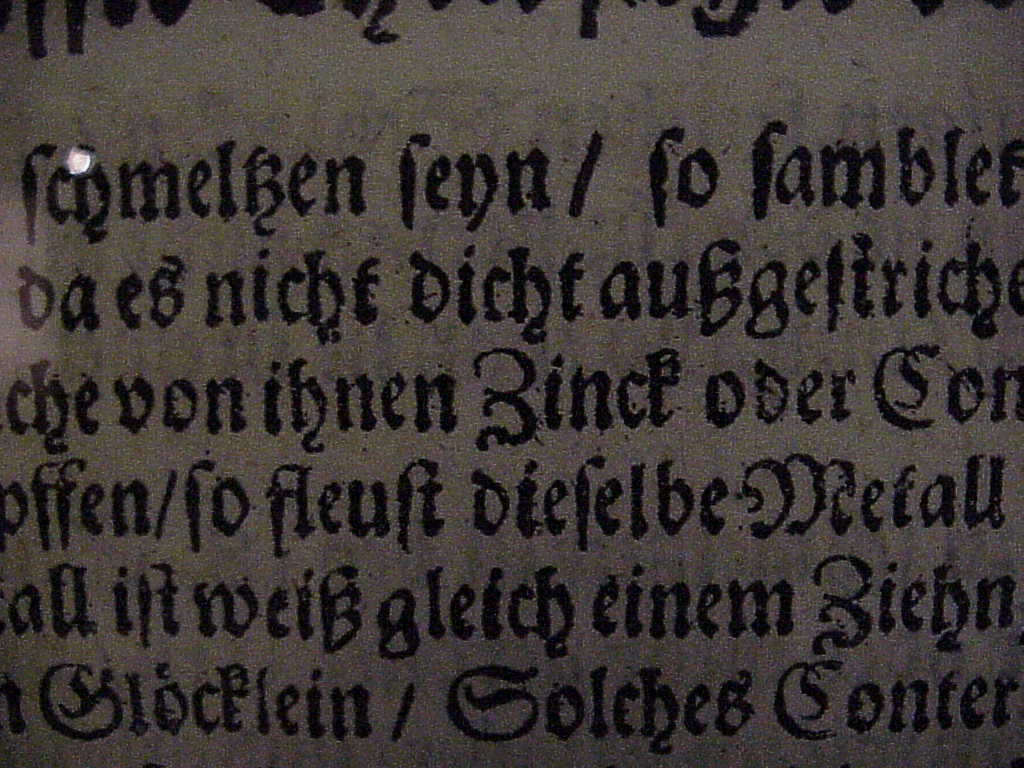 schmeltzen seyn / so samblet
da es nicht dicht außgestriche
che von ihnen Zinck oder Con
pffen / so fleust dieselbe Metall
tall ist weiß gleich einem Ziehn
Glöcklein / Solches Conter